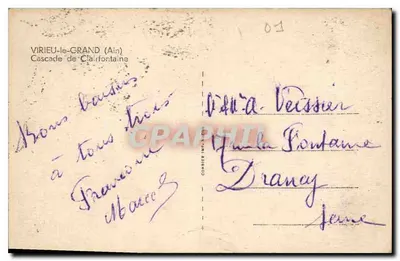 VIRIEU-le-GRAND (Ain)
Cascade de Clairfontaine
01
Bons baisers
à tous trois
Francoise
Marcel
Veissier
Fontaine
Drancy
Seine
CPARAMA